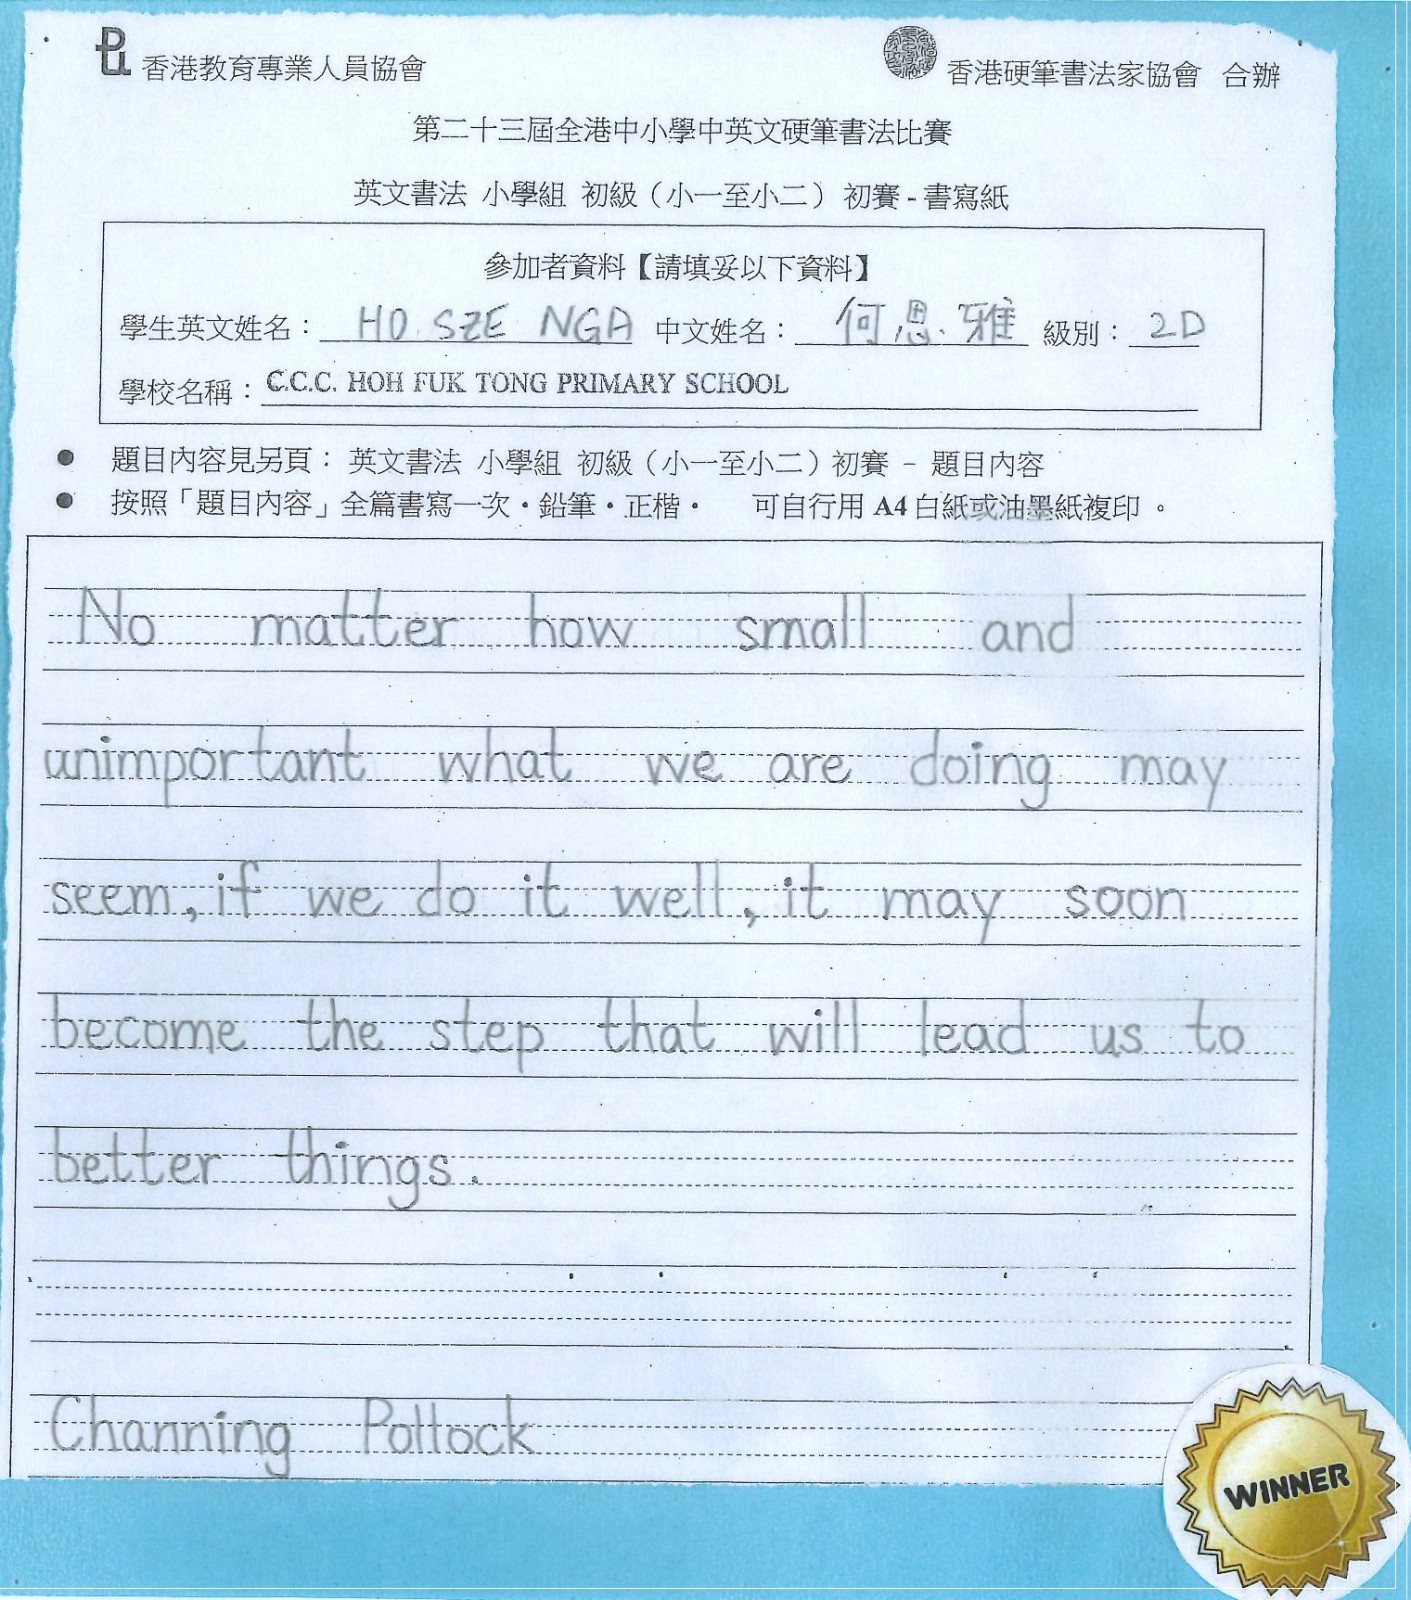 香港教育專業人員協會
香港硬筆書法家協會 合辦
第二十三屆全港中小學中英文硬筆書法比賽
英文書法 小學組 初級（小一至小二）初賽 - 書寫紙
參加者資料【請填妥以下資料】
學生英文姓名： HO SZE NGA 中文姓名： 何恩雅 級別： 2D
學校名稱： C.C.C. HOH FUK TONG PRIMARY SCHOOL
● 題目內容見另頁： 英文書法 小學組 初級（小一至小二）初賽 - 題目內容
● 按照「題目內容」全篇書寫一次‧鉛筆‧正楷‧ 可自行用 A4 白紙或油墨紙複印。
No matter how small and
unimportant what we are doing may
seem, if we do it well, it may soon
become the step that will lead us to
better things.
Channing Pollock
WINNER